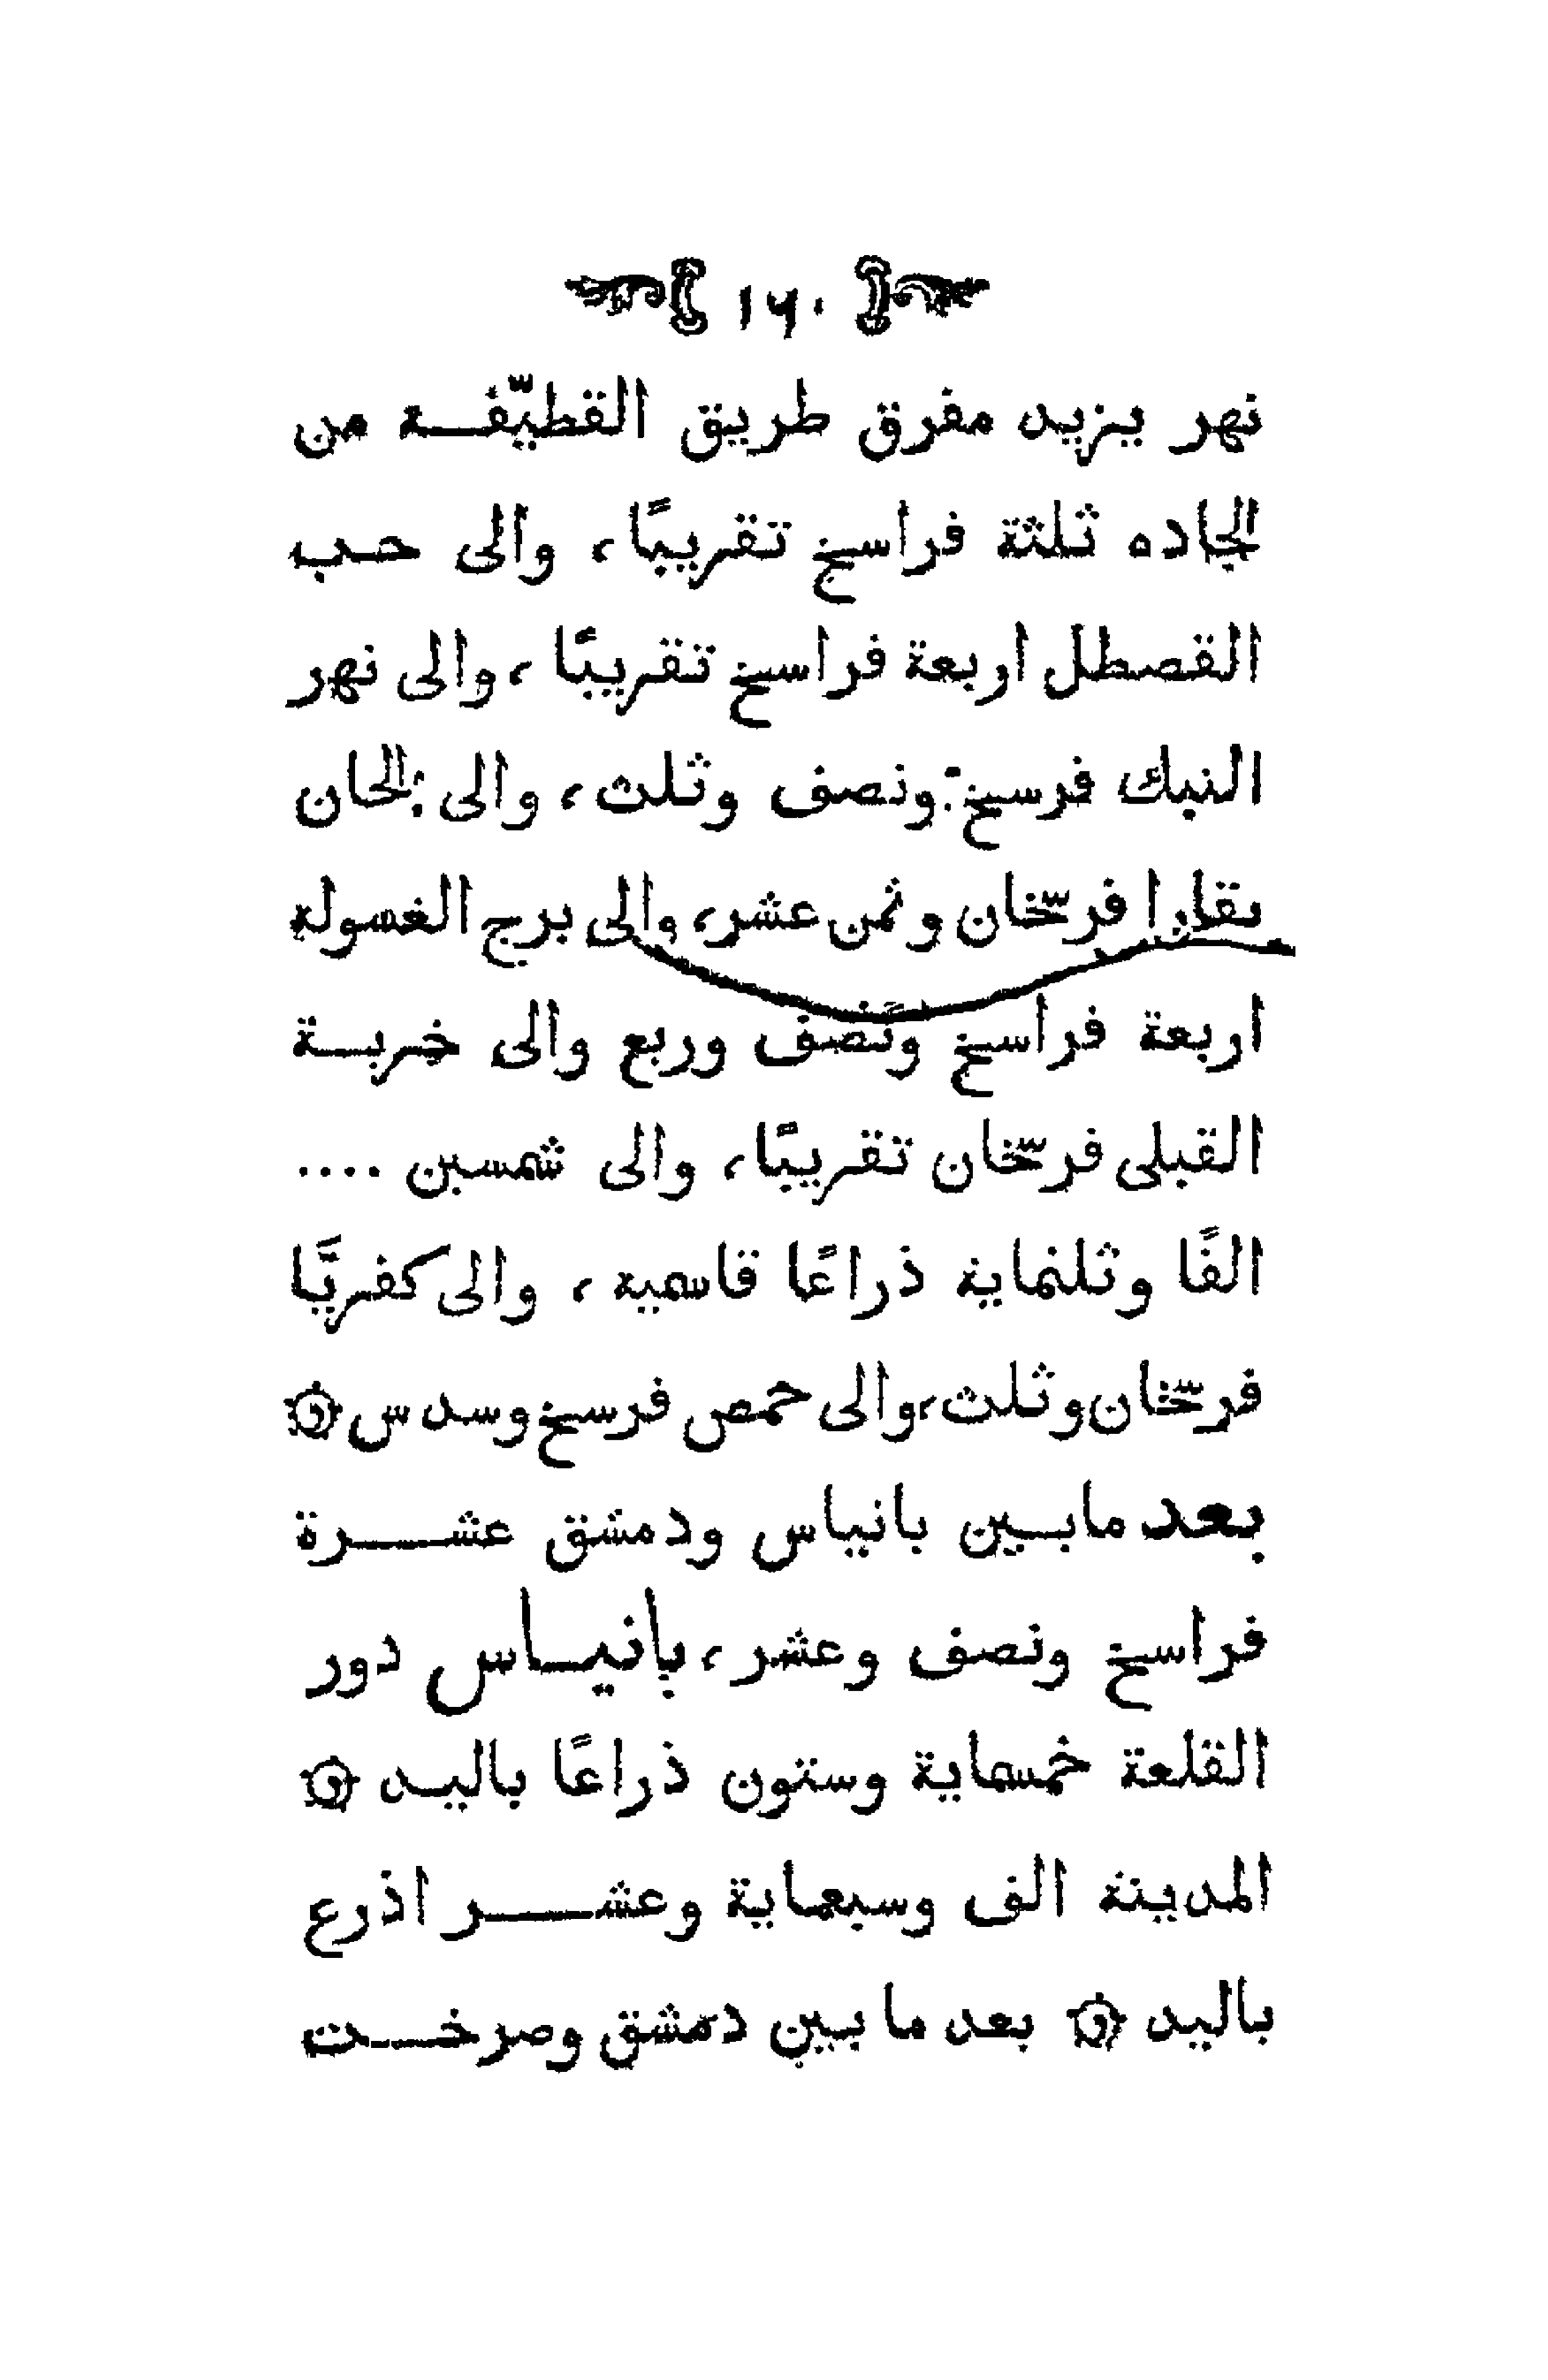 ١٦٠
نهر يزيد مفرق طريق القطيّفة من
الجاده ثلثة فراسخ تقريبًا، والى حب
القصطل اربعة فراسخ تقريبًا، والى نهر
النبك فرسخ ونصف وثلث، والى الخان
بقارا فرسخان وثمن عشر، والى برج الغسوله
اربعة فراسخ ونصف وربع والى خربة
القبلى فرسخان تقريبًا، والى شمسين ....
الفًا وثلثماية ذراعًا قاسميه، والى كفريّا
فرسخان وثلث، والى حمص فرسخ وسدس
بعد مابين بانياس ودمشق عشرة
فراسخ ونصف وعشر، بانياس دور
القلعة خمسماية وستون ذراعًا باليد
المدينة الف وسبعماية وعشر اذرع
باليد بعد ما بين دمشق وصرخت